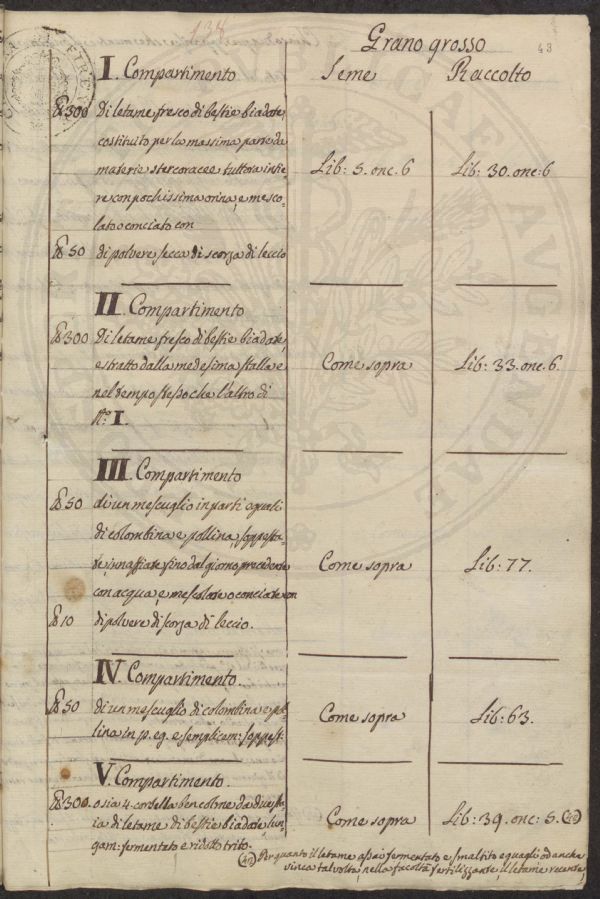 138
43
Grano grosso
I. Compartimento Seme Raccolto
℔ 300 Di letame fresco di bestie biadate,
costituito per la massima parte da
materie stercoracee tuttora intie- Lib: 5. onc. 6 Lib: 30. onc: 6
re con pochissima orina, e mesco-
lato o conciato con
℔ 50 di polvere secca di scorza di leccio
II. Compartimento
℔ 300 Di letame fresco di bestie biadate,
estratto dalla medesima stalla e Come sopra Lib: 33. onc. 6.
nel tempo stesso che l'altro di
N.º I.
III. Compartimento
℔ 50 di un mescuglio in parti eguali
di colombina e pollina, soppesta-
te, innaffiate fino dal giorno precedente Come sopra Lib: 77.
con acqua, e mescolate o conciate con
℔ 10 di polvere di scorza di leccio.
IV. Compartimento.
℔ 50 di un mescuglio di colombina e pol-
lina in p. eg. e semplicem: soppest: Come sopra Lib: 63.
V. Compartimento.
℔ 300. o sia 4. corbella ben colme da due sta-
ia di letame di bestie biadate, lun- Come sopra Lib: 39. onc: 5.
gam: fermentato e ridotto trito.
Per quanto il letame assai fermentato e smaltito eguagli od anche
vinca talvolta, nella facoltà fertilizzante, il letame recente,